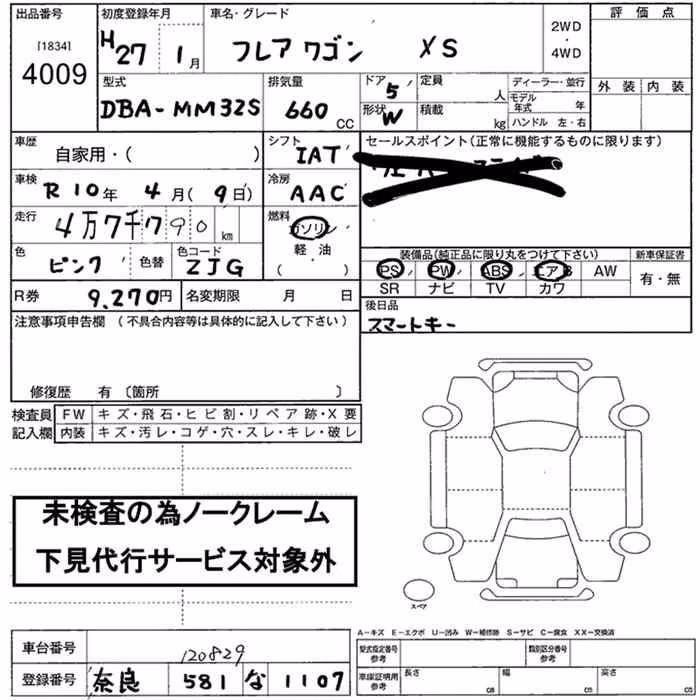 出品番号 初度登録年月 車名・グレード 2WD・4WD 評価点
[1834] 4009 H27 1月 フレアワゴン XS 外装 内装
型式 排気量 ドア 5 定員 人 ディーラー・並行
DBA-MM32S 660 CC 形状 W 積載 kg モデル年式 年
ハンドル 左・右
車歴 自家用・( ) シフト IAT セールスポイント(正常に機能するものに限ります)
車検 R10年 4月(9日) 冷房 AAC
走行 4万7千790 km 燃料 ガソリン 軽油 ( )
色 ピンク 色替 色コード ZJG
装備品(純正品に限り丸をつけて下さい) 新車保証書
PS PW ABS エアB AW 有・無
SR ナビ TV カワ
R券 9,270円 名変期限 月 日 後日品
スマートキー
注意事項申告欄 (不具合内容等は具体的に記入して下さい)
修復歴 有 〔箇所 〕
検査員 FW キズ・飛石・ヒビ割・リペア跡・X要
記入欄 内装 キズ・汚レ・コゲ・穴・スレ・キレ・破レ
未検査の為ノークレーム
下見代行サービス対象外
スペア
A-キズ E-エクボ U-凹み W-補修跡 S-サビ C-腐食 XX-交換済
車台番号 120829 型式指定番号 参考 類別区分番号 参考
登録番号 奈良 581 な 1107 車庫証明用 参考 長さ cm 幅 cm 高さ cm